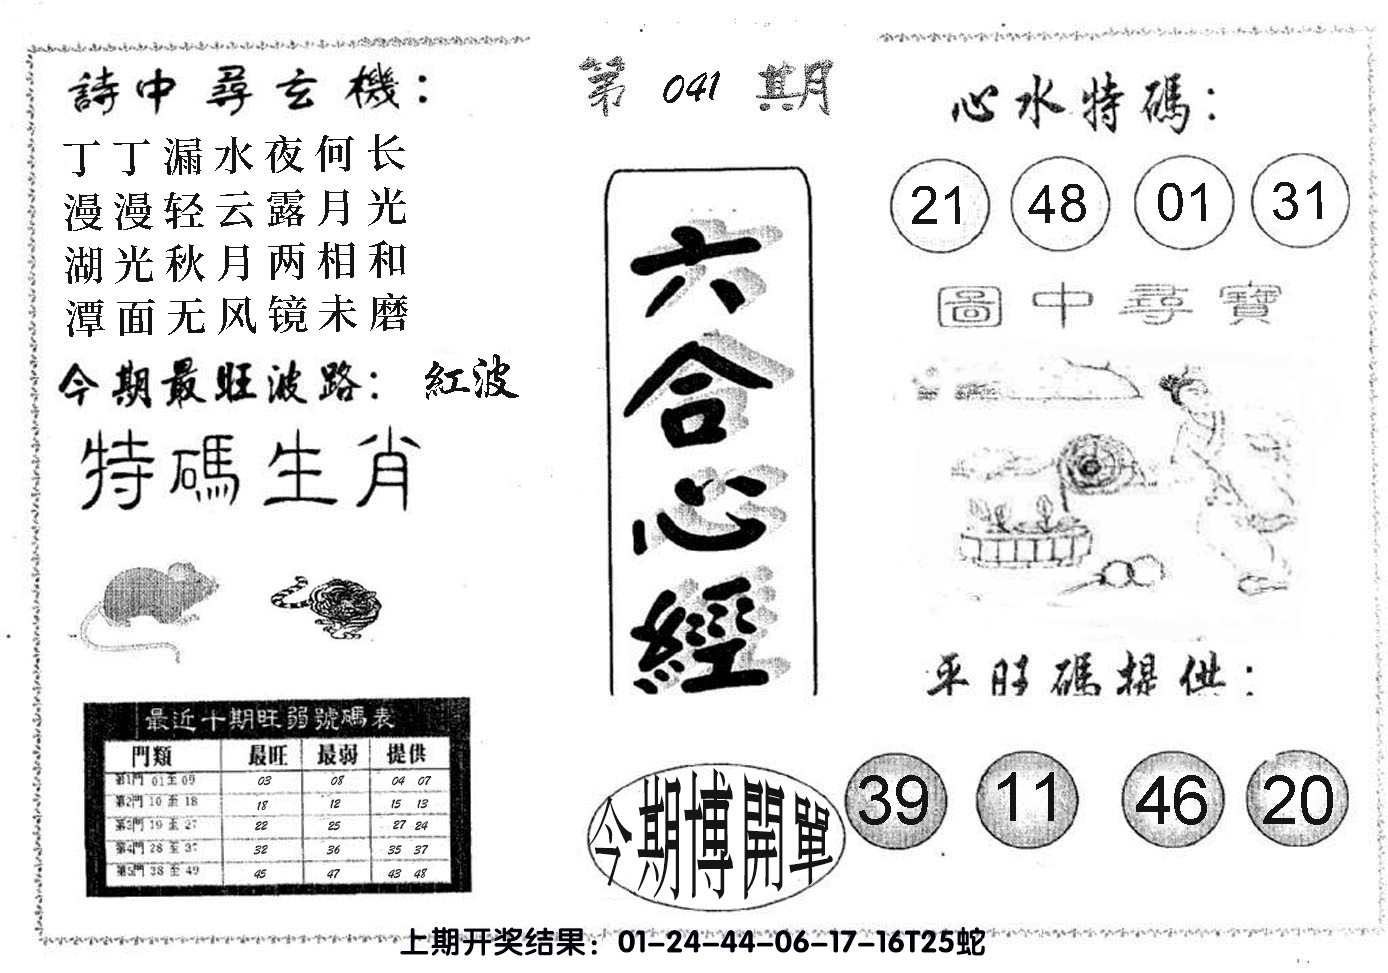 詩中尋玄機：
丁丁漏水夜何长
漫漫轻云露月光
湖光秋月两相和
潭面无风镜未磨
今期最旺波路： 紅波
特碼生肖
最近十期旺弱號碼表
門類 最旺 最弱 提供
第1門 01至09 03 08 04 07
第2門 10至18 18 12 15 13
第3門 19至27 22 25 27 24
第4門 28至37 32 36 35 37
第5門 38至49 45 47 43 48
第 041 期
六合心經
今期博開單
心水特碼：
21 48 01 31
圖中尋寶
平旺碼提供：
39 11 46 20
上期开奖结果：01-24-44-06-17-16T25蛇